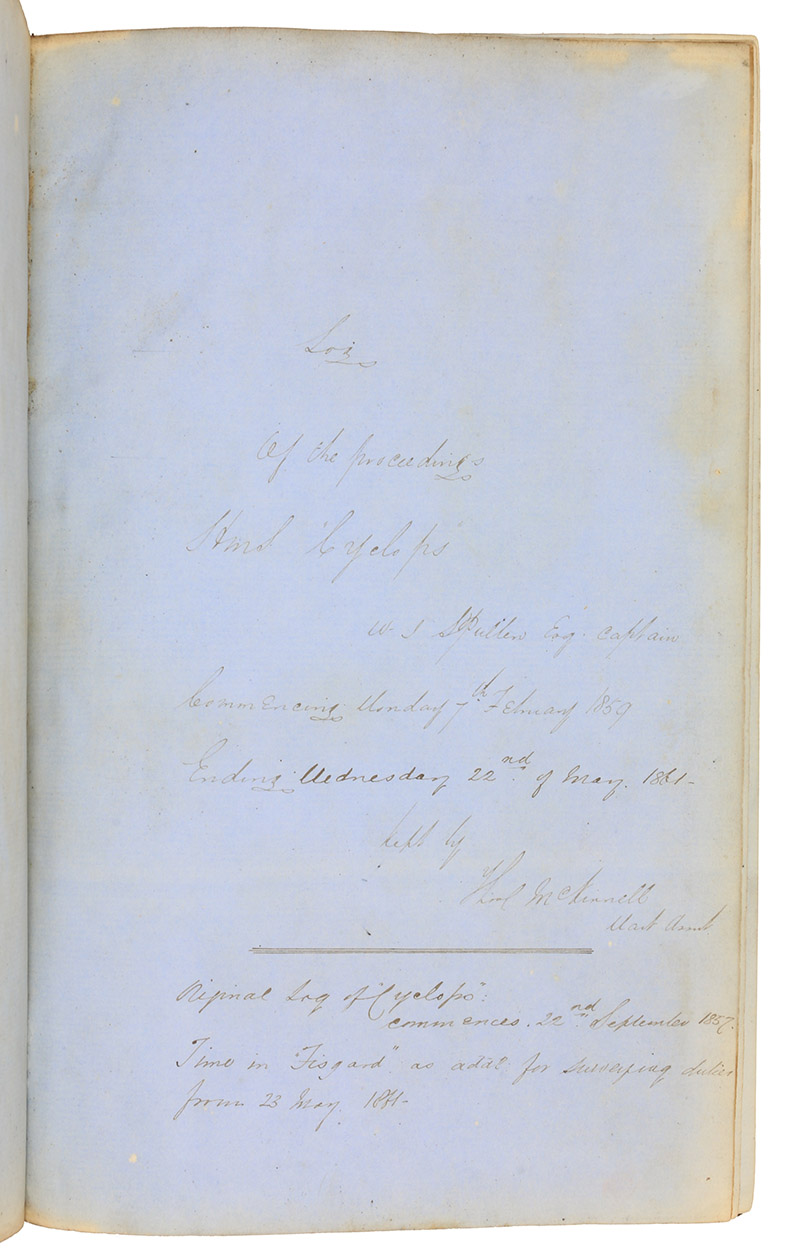 Log
Of the proceedings
HMS Cyclops
W. J. S. Pullen Esq. Captain
Commencing Monday 7th February 1859
Ending Wednesday 22nd of May. 1861-
kept by
McKinnell
Mast Assist
Original Log of "Cyclops".
commences. 22nd September 1857.
Time in "Fisgard" as addl for surveying duties
from 23 May 1861-